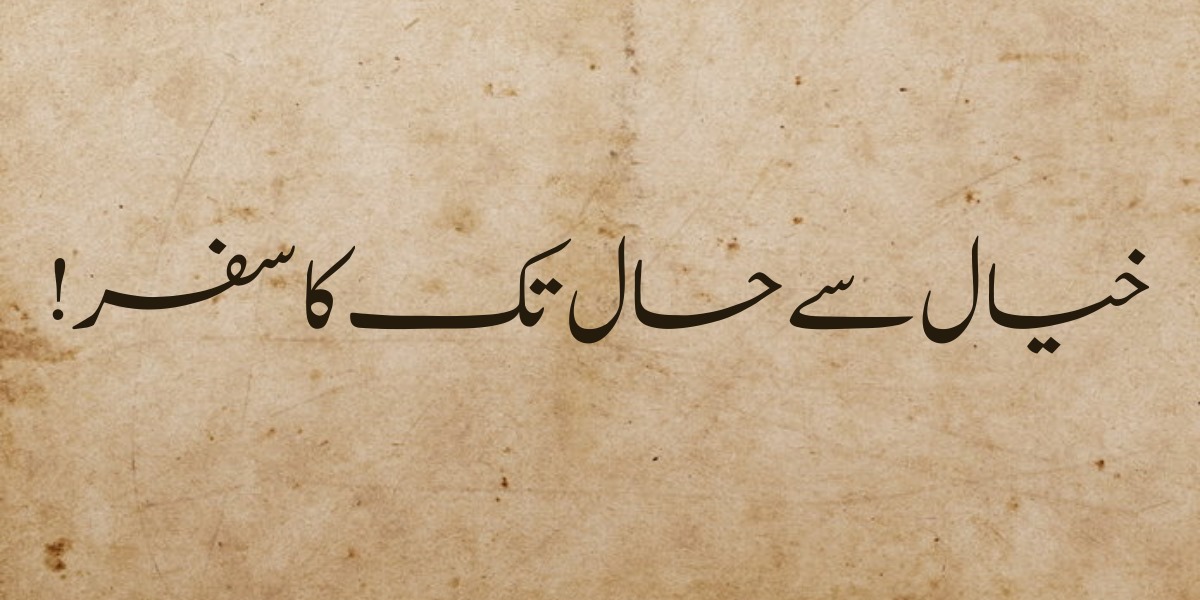 خیال سے حال تک کا سفر!